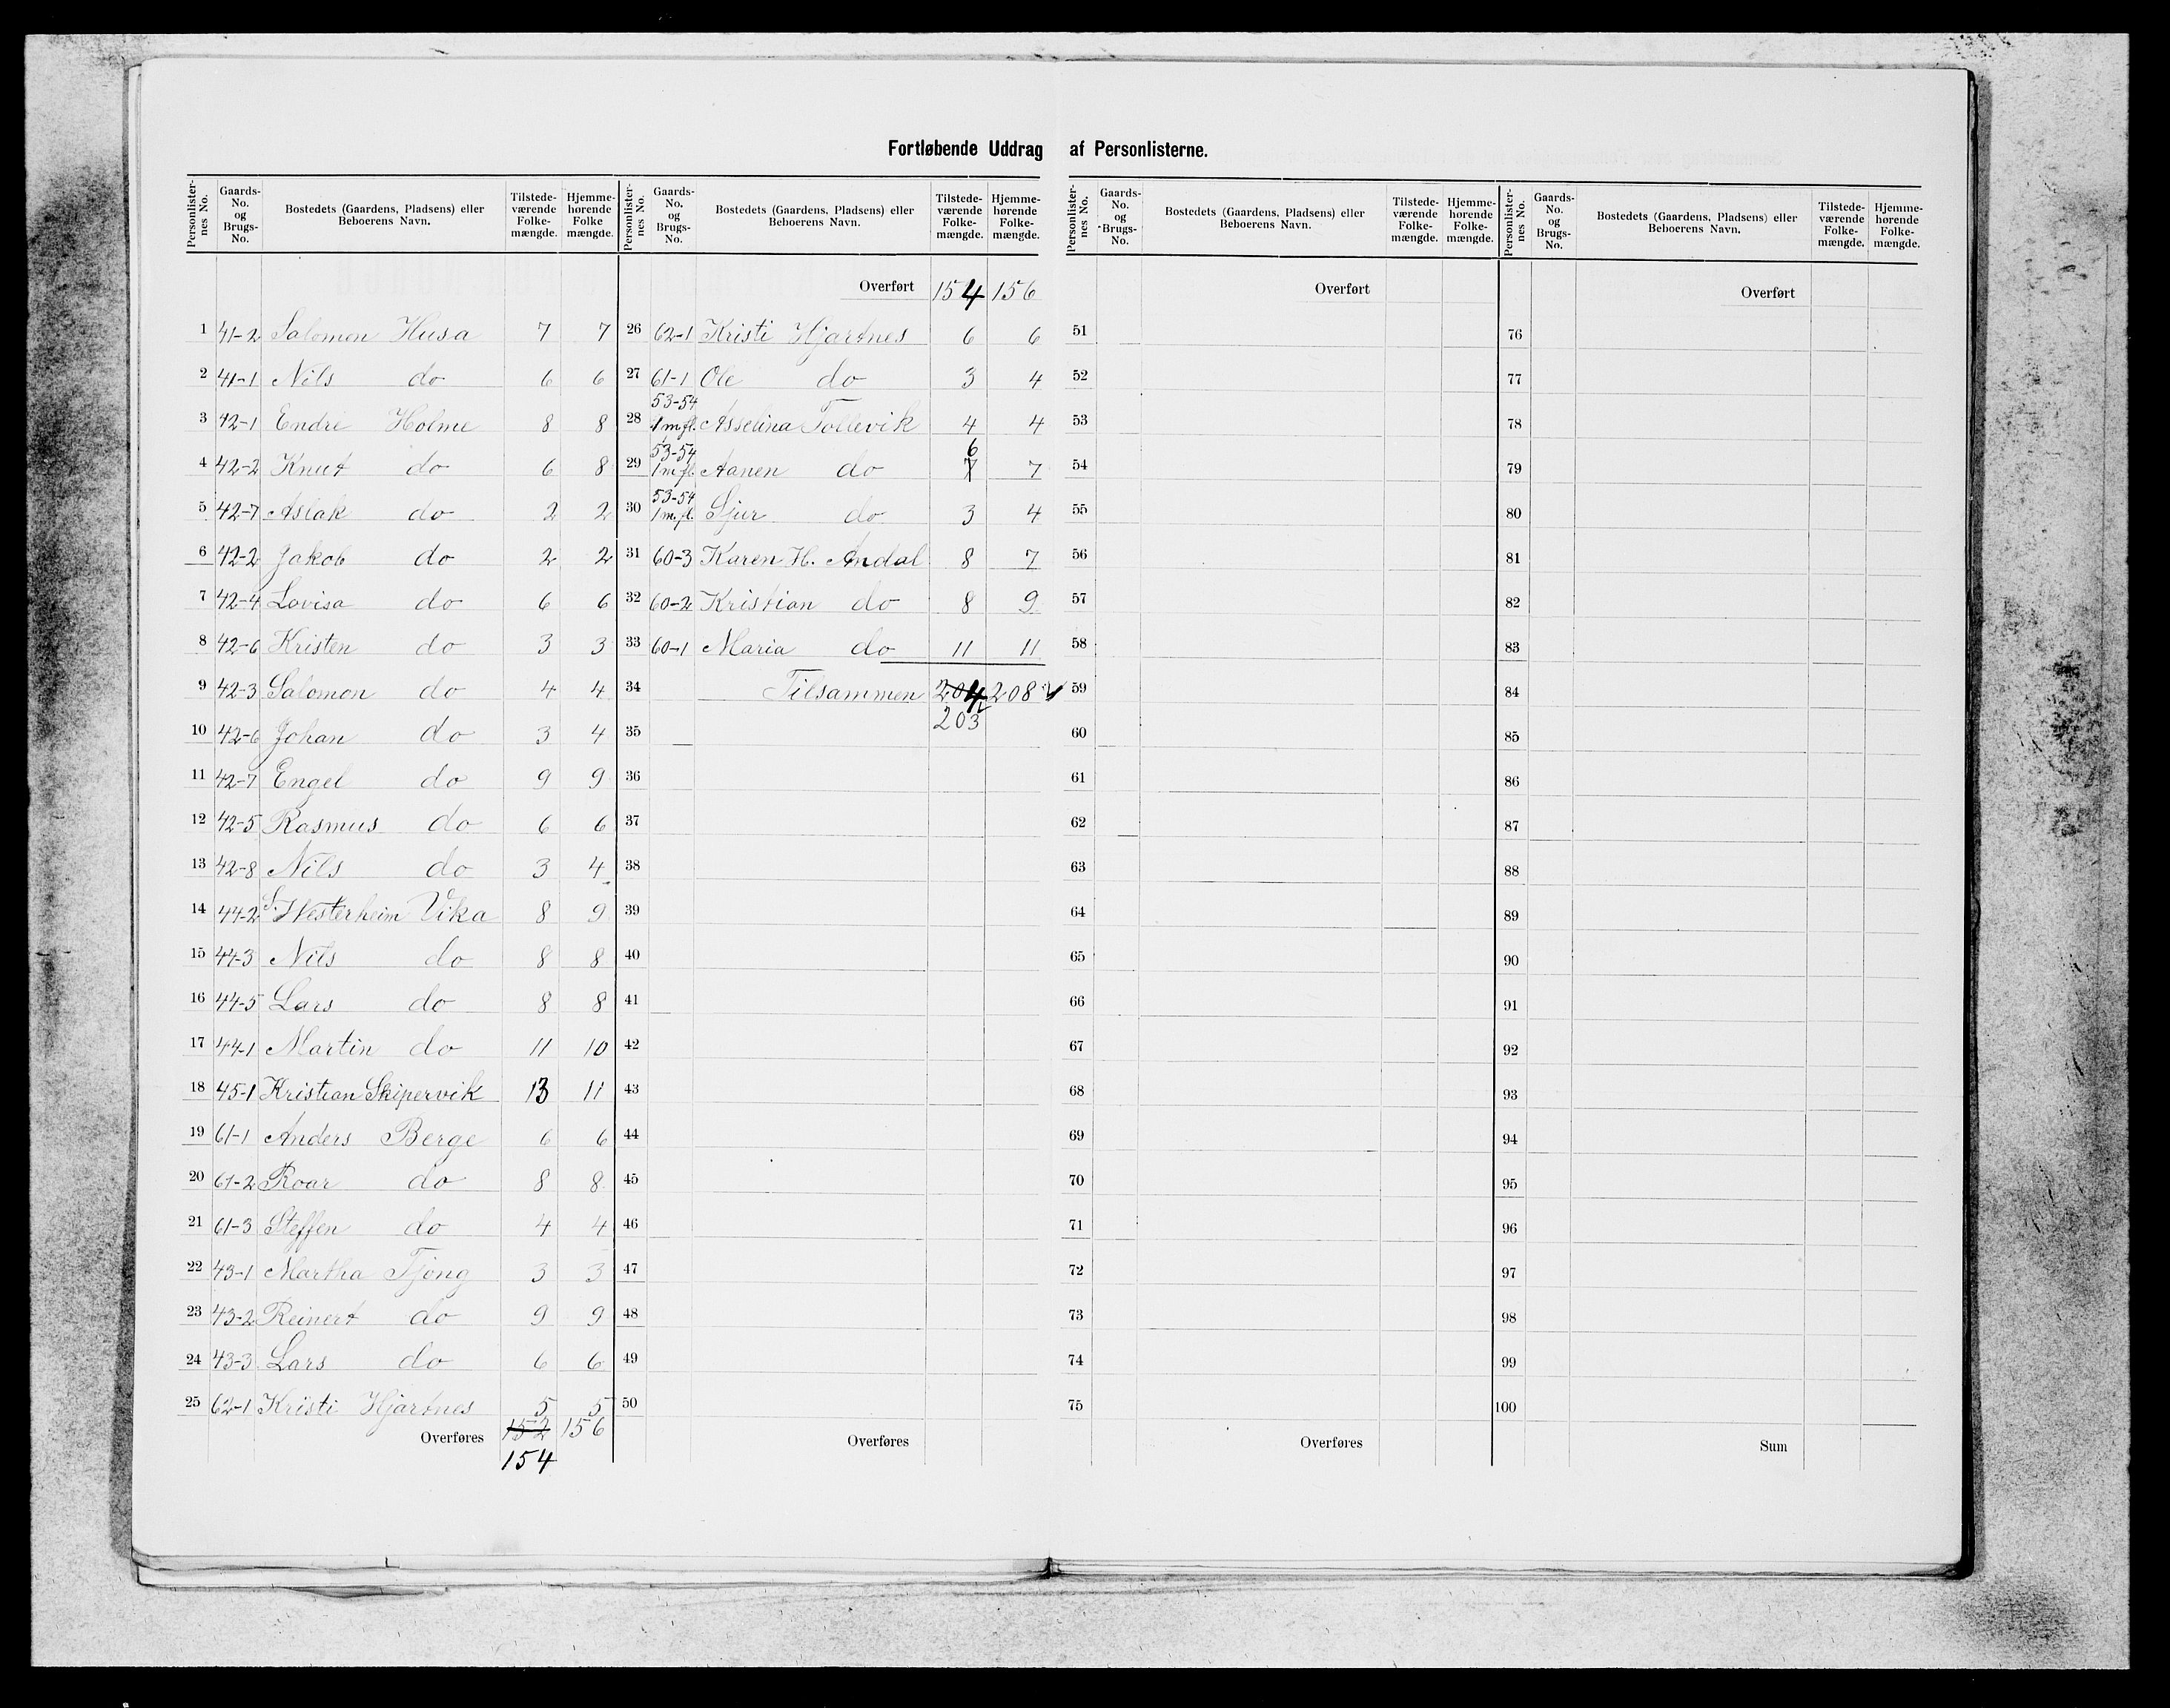 Fortløbende Uddrag af Personlisterne.
Personlister-nes No. Gaards-No. og Brugs-No. Bostedets (Gaardens, Pladsens) eller Beboerens Navn. Tilstede-værende Folke-mængde. Hjemme-hørende Folke mængde.
1 41-2 Salomon Husa 7 7
2 41-1 Nils do 6 6
3 42-1 Endre Holme 8 8
4 42-2 Knut do 6 8
5 42-7 Aslak do 2 2
6 42-2 Jakob do 2 2
7 42-4 Lovisa do 6 6
8 42-6 Kristen do 3 3
9 42-3 Salomon do 4 4
10 42-6 Johan do 3 4
11 42-7 Engel do 9 9
12 42-5 Rasmus do 6 6
13 42-8 Nils do 3 4
14 44-2 S. Westerheim Vika 8 9
15 44-3 Nils do 8 8
16 44-5 Lars do 8 8
17 44-1 Martin do 11 10
18 45-1 Kristian Skipervik 13 11
19 61-1 Anders Berge 6 6
20 61-2 Roar do 8 8
21 61-3 Steffen do 4 4
22 43-1 Martha Tjong 3 3
23 43-2 Reinert do 9 9
24 43-3 Lars do 6 6
25 62-1 Kristi Hjartnes 5 5
Overføres 152 156
154
Personlister-nes No. Gaards-No. og Brugs-No. Bostedets (Gaardens, Pladsens) eller Beboerens Navn. Tilstede-værende Folke-mængde. Hjemme-hørende Folke-mængde.
Overført 154 156
26 62-1 Kristi Hjartnes 6 6
27 61-1 Ole do 3 4
53-54
28 1 m.fl. Asselina Tollevik 4 4
53-54 6
29 1 m.fl. Aanen do 7 7
53-54
30 1 m.fl. Sjur do 3 4
31 60-3 Karen H. Andal 8 7
32 60-2 Kristian do 8 9
33 60-1 Maria do 11 11
34 Tilsammen 204 208
203
35
36
37
38
39
40
41
42
43
44
45
46
47
48
49
50
Overføres
Personlister-nes No. Gaards-No. og Brugs-No. Bostedets (Gaardens, Pladsens) eller Beboerens Navn. Tilstede-værende Folke-mængde. Hjemme-hørende Folke-mængde.
Overført
51
52
53
54
55
56
57
58
59
60
61
62
63
64
65
66
67
68
69
70
71
72
73
74
75
Overføres
Personlister-nes No. Gaards-No. og Brugs-No. Bostedets (Gaardens, Pladsens) eller Beboerens Navn. Tilstede-værende Folke-mængde. Hjemme-hørende Folke-mængde.
Overført
76
77
78
79
80
81
82
83
84
85
86
87
88
89
90
91
92
93
94
95
96
97
98
99
100
Sum